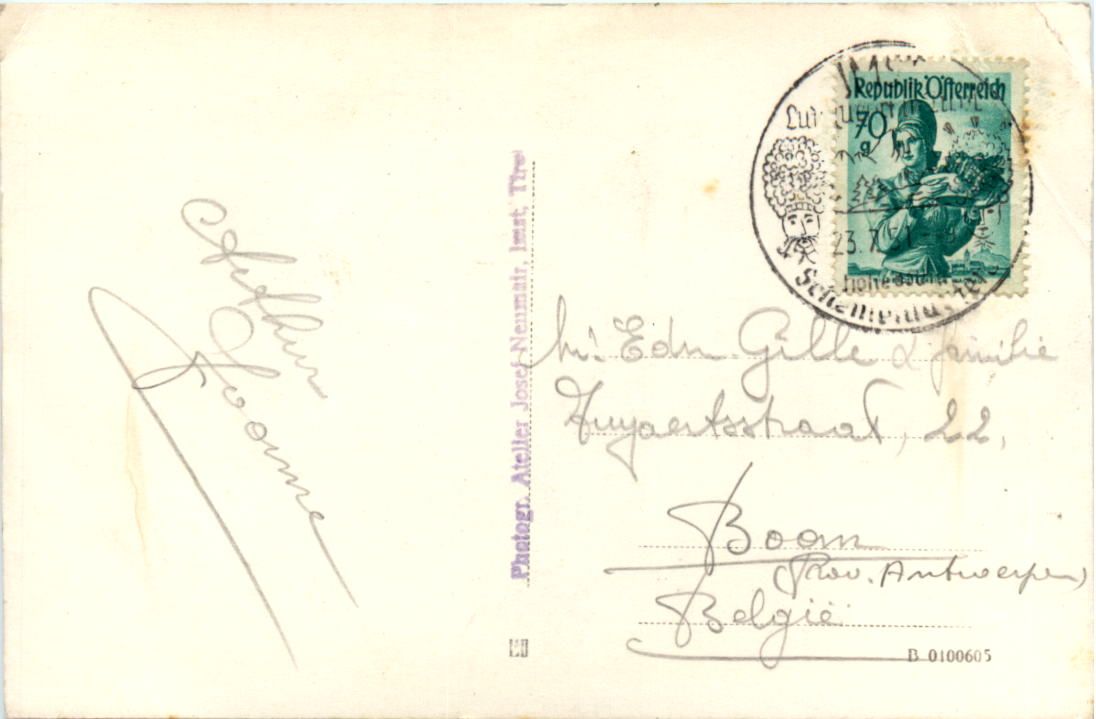 Arthur
Joanne
Photogr. Atelier Josef Neumair, Imst, Tirol
Republik Österreich
70
g
IMST
23.7.51
Schemenlaufen
Mr. Edm. Gille & familie
Huyaertsstraat, 22,
Boom
(Prov. Antwerpen)
België
B 0100605